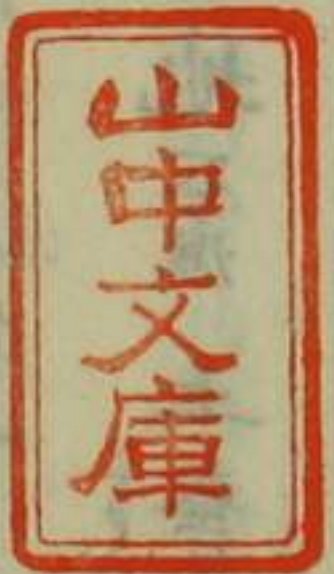 山中文庫